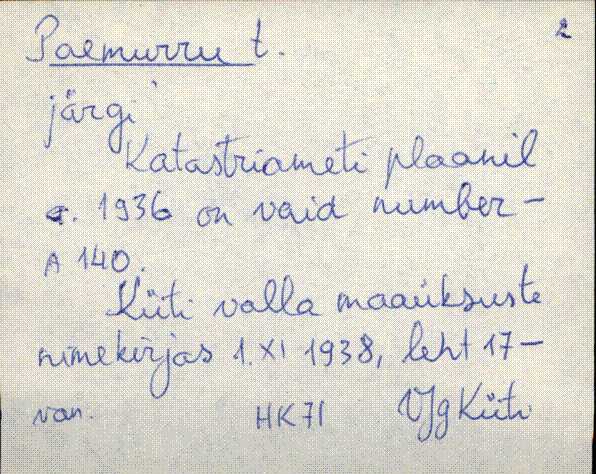 Paemurru t. 2
järgi
Katastriameti plaanil
a. 1936 on vaid number -
A 140.
Küti valla maaüksuste
nimekirjas 1. XI 1938, leht 17 -
van. HK71 VJg Küti